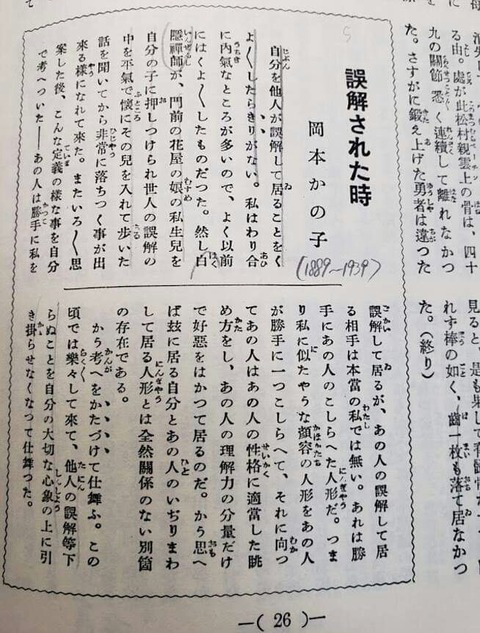 消失
る由。處が此松村親雲上の骨は、四十
九の關節 悉く連續して離れなかつ
た。さすがに鍛え上げた勇者は違つた
見ると、
れす棒の如く、齒一枚も落て居なかつ
た。（終り）
誤解された時
岡本かの子
(1889〜1939)
自分を他人が誤解して居ることをく
よ〱したらきりがない。私はわり合
に内氣なところが多いので、よく以前
にはくよ〱したものだつた。然し白
隱禪師が、門前の花屋の娘の私生兒を
自分の子に押しつけられ世人の誤解の
中を平氣で懷にその兒を入れて歩いた
話を聞いてから非常に落ちつく事が出
來る樣になれて來た。またいろ〱思
案した後、こんな定義の樣な事を自分
で考へついた――あの人は勝手に私を
誤解して居るが、あの人の誤解して居
る相手は本當の私では無い。あれは勝
手にあの人のこしらへた人形だ。つま
り私に似たやうな顏容の人形をあの人
が勝手に一つこしらへて、それに向つ
てあの人はあの人の性格に適當した眺
め方をし、あの人の理解力の分量だけ
で好惡をはかつて居るのだ。かう思へ
ば玆に居る自分とあの人のいぢりまわ
して居る人形とは全然關係のない別箇
の存在である。
かう考へをかたづけて仕舞ふ。この
頃では樂々して來て、他人の誤解等下
らぬことを自分の大切な心象の上に引
き掛らせなくなつて仕舞つた。
—( 26 )—